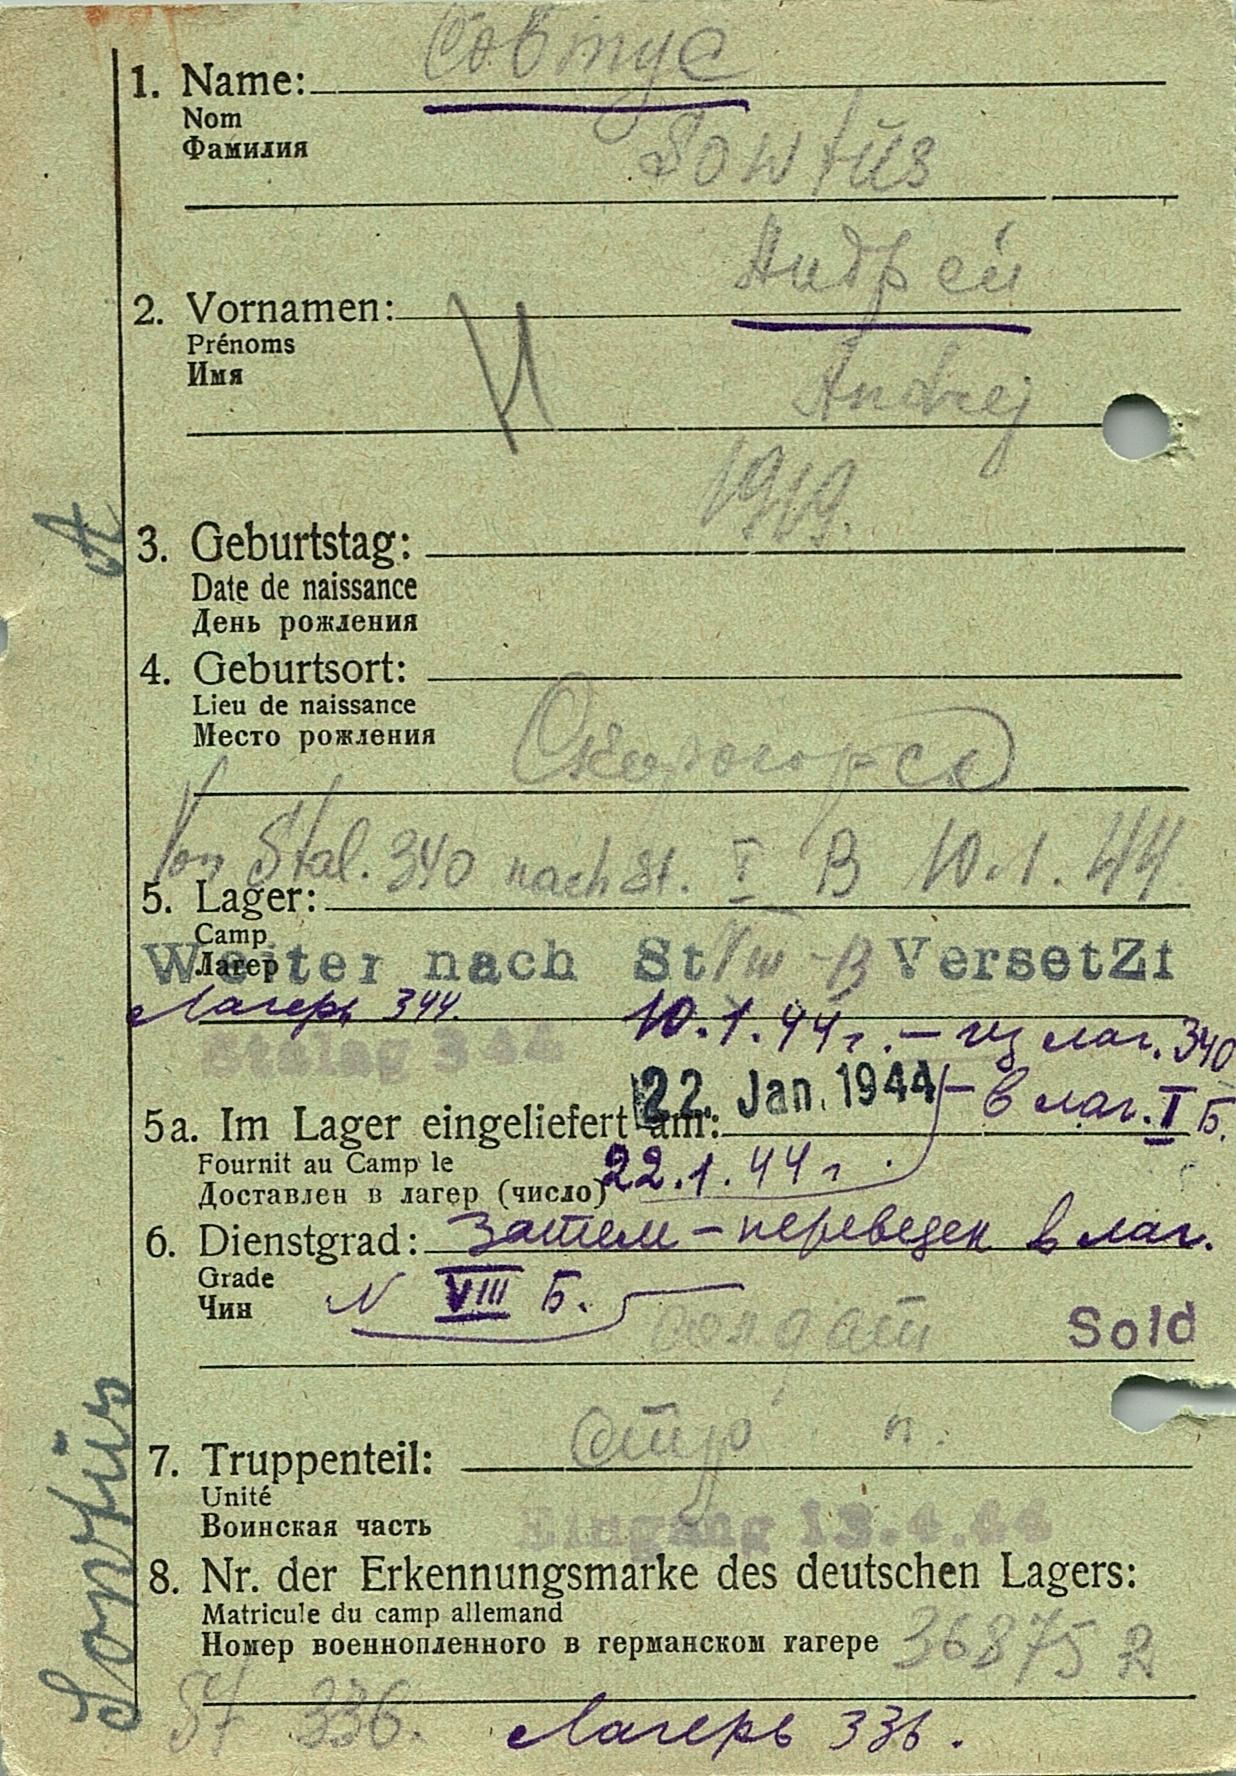 Совтус
1. Name:
Nom
Фамилия
Sowtus
Андрей
2. Vornamen:
Prénoms
Имя
И
Andrej
1919.
A
3. Geburtstag:
Date de naissance
День рождения
4. Geburtsort:
Lieu de naissance
Место рождения
Von Stal. 340 nach St. I B 10.1.44
5. Lager:
Camp
Лагерь
Weiter nach St VIII-B VersetZt
Лагерь 344. 10.1.44 г. – из лаг. 340
Stalag 344
22. Jan. 1944 – в лаг. I Б.
5a. Im Lager eingeliefert am:
Fournit au Camp le
Доставлен в лагер (число) 22.1.44 г.
6. Dienstgrad: Затем – переведен в лаг.
Grade
Чин N VIII Б.
солдат Sold
7. Truppenteil: п.
Unité
Воинская часть
Eingang 13.4.44
8. Nr. der Erkennungsmarke des deutschen Lagers:
Matricule du camp allemand
Номер военнопленного в германском лагере 36875
Sowtus
St 336. Лагерь 336.